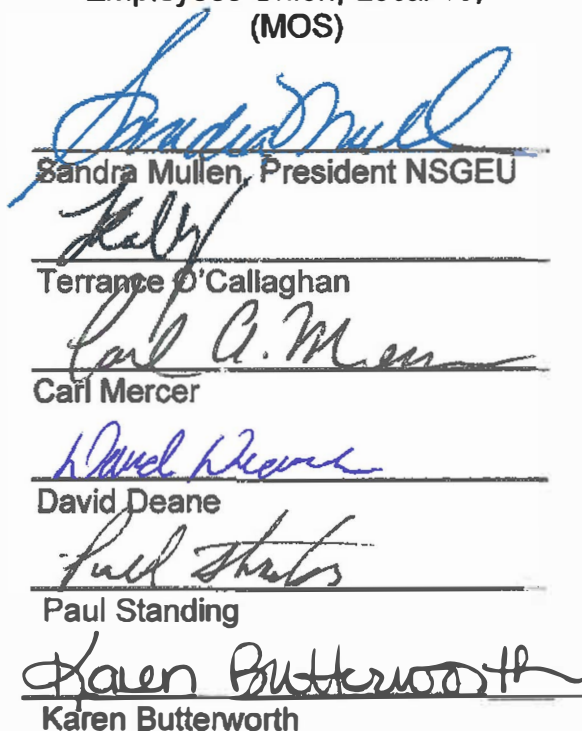 (MOS)
Sandra Mullen
Sandra Mullen, President NSGEU
Terrance O'Callaghan
Carl A. Mercer
Carl Mercer
David Deane
David Deane
Paul Standing
Karen Butterworth
Karen Butterworth